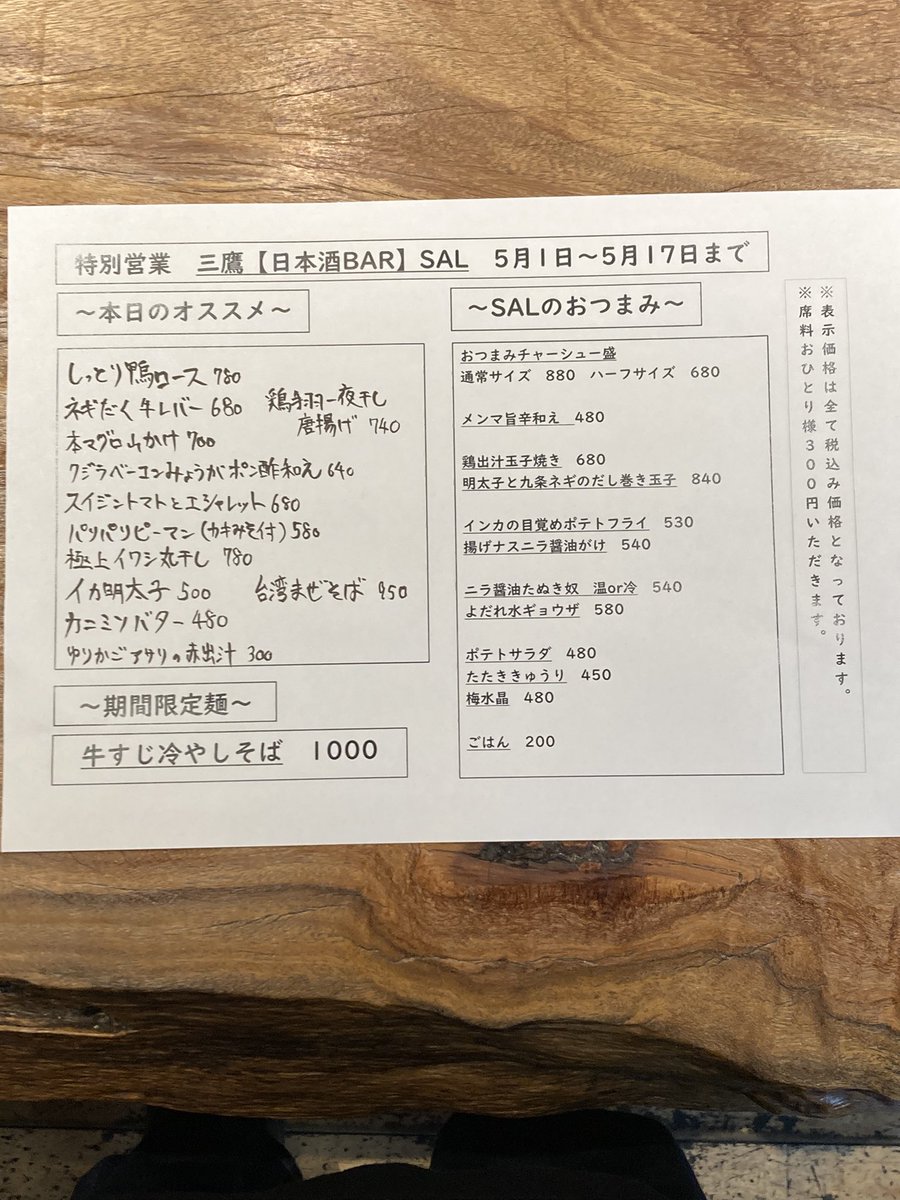 特別営業 三鷹【日本酒BAR】SAL 5月1日～5月17日まで
～本日のオススメ～
しっとり鴨ロース 780
ネギだく牛レバー 680
鶏手羽一夜干し
唐揚げ 740
本マグロ山かけ 700
クジラベーコンみょうがポン酢和え 640
スイジントマトとエシャレット 680
パリパリピーマン(カキみそ付) 580
極上イワシ丸干し 780
イカ明太子 500
台湾まぜそば 950
カニミソバター 480
ゆりかごアサリの赤出汁 300
～期間限定麺～
牛すじ冷やしそば 1000
～SALのおつまみ～
おつまみチャーシュー盛
通常サイズ 880 ハーフサイズ 680
メンマ旨辛和え 480
鶏出汁玉子焼き 680
明太子と九条ネギのだし巻き玉子 840
インカの目覚めポテトフライ 530
揚げナスニラ醤油がけ 540
ニラ醤油たぬき奴 温or冷 540
よだれ水ギョウザ 580
ポテトサラダ 480
たたききゅうり 450
梅水晶 480
ごはん 200
※表示価格は全て税込み価格となっております。
※席料おひとり様300円いただきます。